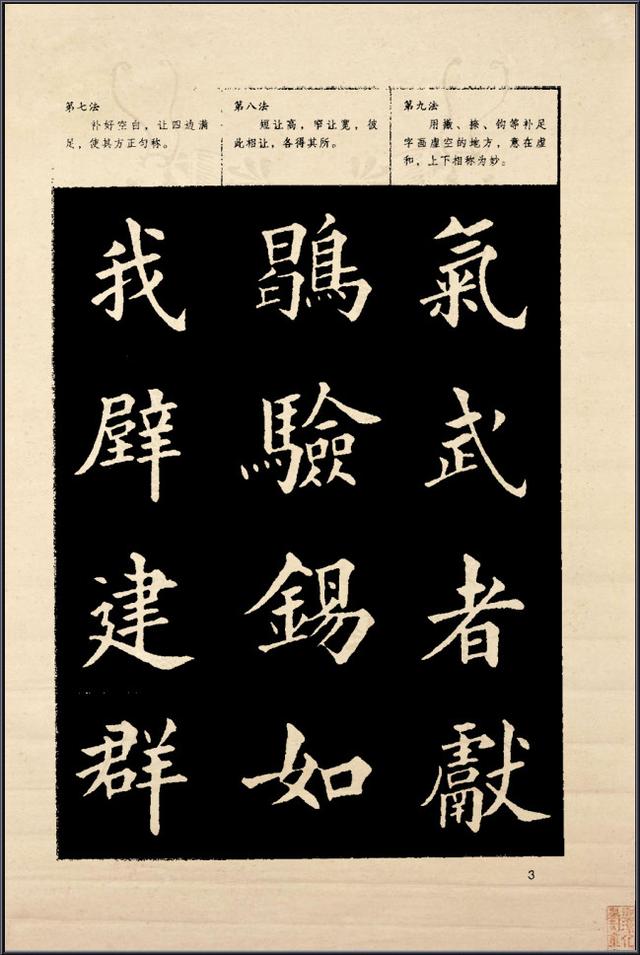 第七法
补好空白，让四边满
足，使其方正匀称。
第八法
短让高，窄让宽，彼
此相让，各得其所。
第九法
用撇、捺、钩等补足
字画虚空的地方，意在虚
和，上下相称为妙。
我
辟
建
群
鶡
驗
錫
如
氣
武
者
獻
3